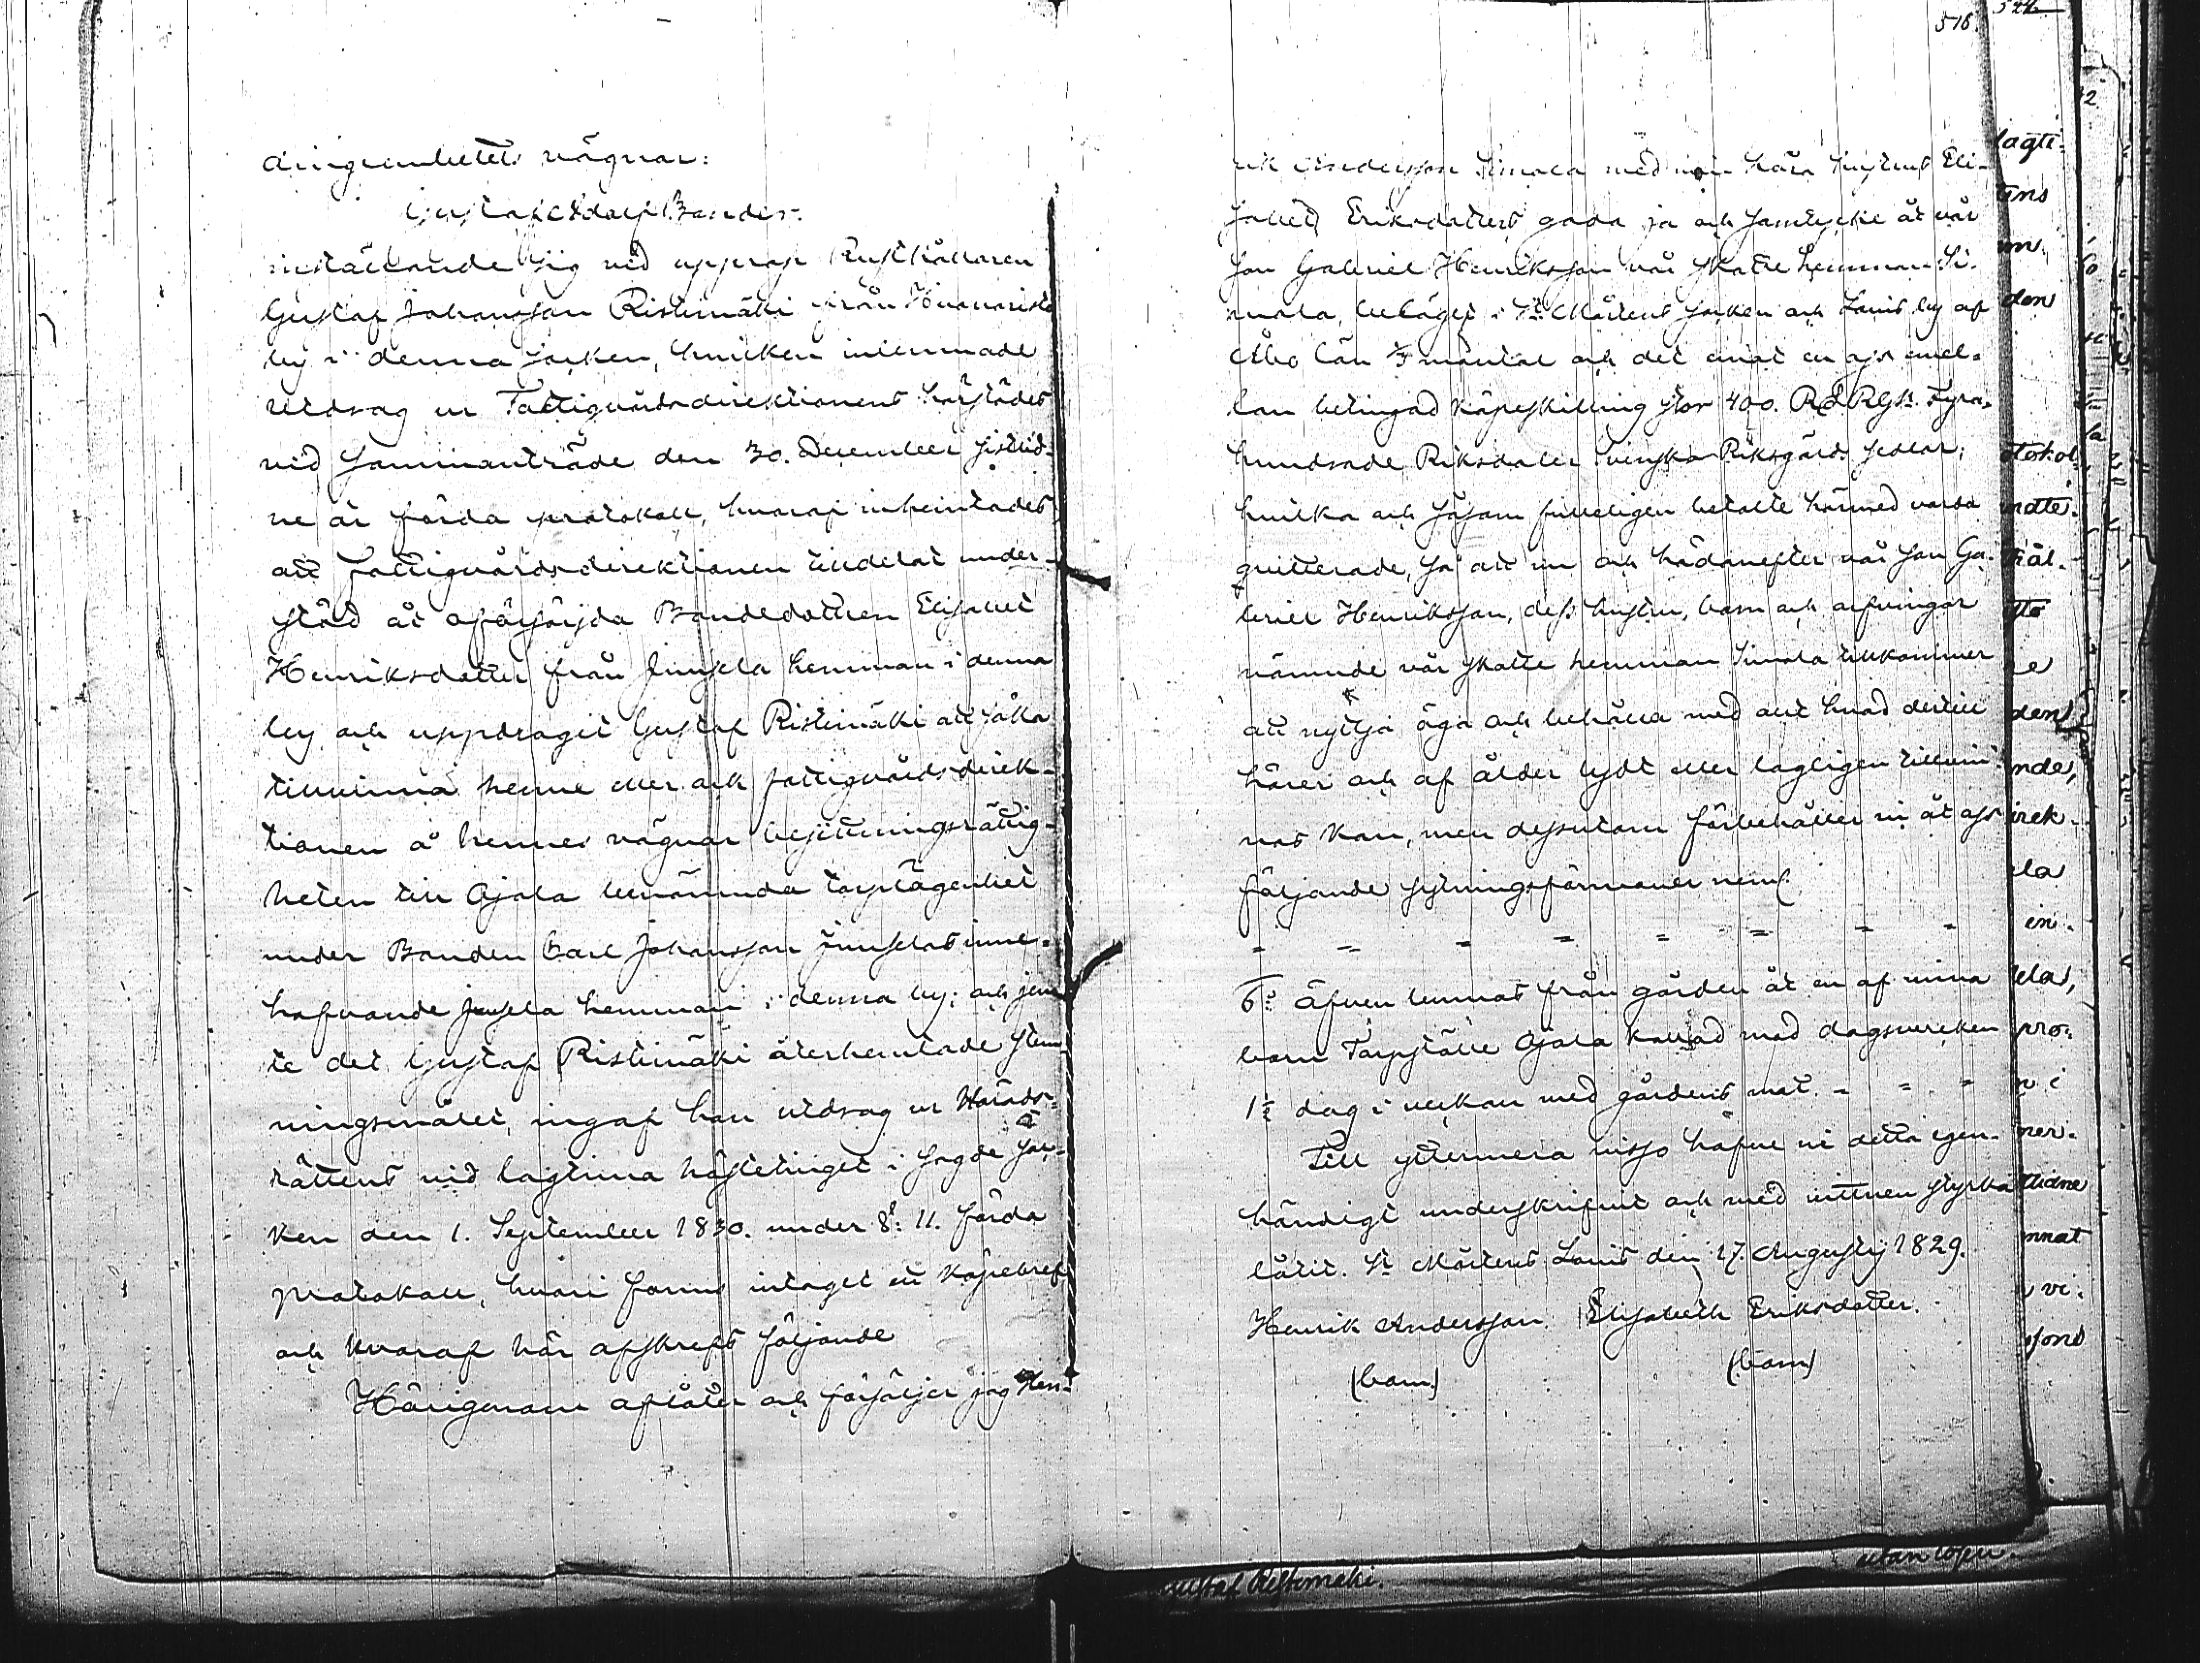 dingsembetets vägnar:
Gustaf Adolf Bander.
inställande sig vid upprop Rusthållaren
Gustaf Johansson Ristimäki från
by i denna socken, hvilken inlemnade
utdrag ur Fattigvårdsdirektionens härstädes
vid sammanträde den 30. December sistlid-
ne år förda protokoll, hvaraf inhemtades
att fattigvårdsdirektionen tilldelat under-
stöd åt oförsörjda Bondedottren Elisabet
Henriksdotter från Junsela hemman i denna
by och uppdragit Gustaf Ristimäki att söka
tillvinna henne eller ock fattigvårdsdirek-
tionen å hennes vägnar besittningsrättig-
heten till Ojala benämnda torplägenhet
under Bonden Carl Johansson Junselas inne-
hafvande Junsela hemman i denna by; och jem-
te det Gustaf Ristimäki återhemtade stem-
ningsmålet, ingaf han utdrag ur Härads-
rättens vid lagtima höstetinget i sagde soc-
ken den 1. September 1830. under §: 11. förda
protokoll, hvari fanns intaget ett köpebref
och hvaraf här afskrefs följande
Härigenom aflåter och försäljer jag Hen-
516.
rik Andersson Simola med min kära hustrus Eli-
sabet Eriksdotters goda ja och samtycke åt vår
son Gabriel Henriksson vår skatte hemman Si-
mola, beläget i St Mårtens socken och Lauris by af
Åbo län 1/3 mantal och det emot en oss emel-
lan betingad köpeskilling stor 400. Rd RGs. Fyra-
hundrade Riksdaler Svenska Riksgälds sedlar;
hvilka och såsom fulleligen betalte härmed varda
quitterade, så att nu och hädanefter vår son Ga-
briel Henriksson, dess hustru, barn och arfvingar
nämnde vår skatte hemman Simola tillkommer
att nyttja äga och behålla med allt hvad dertill
hörer och af ålder lydt eller lagligen tillvin-
nas kan, men dessutom förbehålle vi åt oss
följande sytningsförmoner neml.
6:o äfven lemnas från gården åt en af mina
barn Torpställe Ojala kallad med dagsverken
1 1/2 dag i veckan med gårdens mat. - - -
Till yttermera visso hafve vi detta egen-
händigt underskrifvit och med vittnen styrka
låtit. St Mårtens Lauris den 17. Augusti 1829.
Henrik Andersson. Elisabeth Eriksdotter.
(bom.) (bom)
lagti-
tens
den
otokol-
ndte-
den
nde,
irek-
ela
ela,
pro-
ner-
tidne
mnat
vi-
Gustaf Ristimäki.